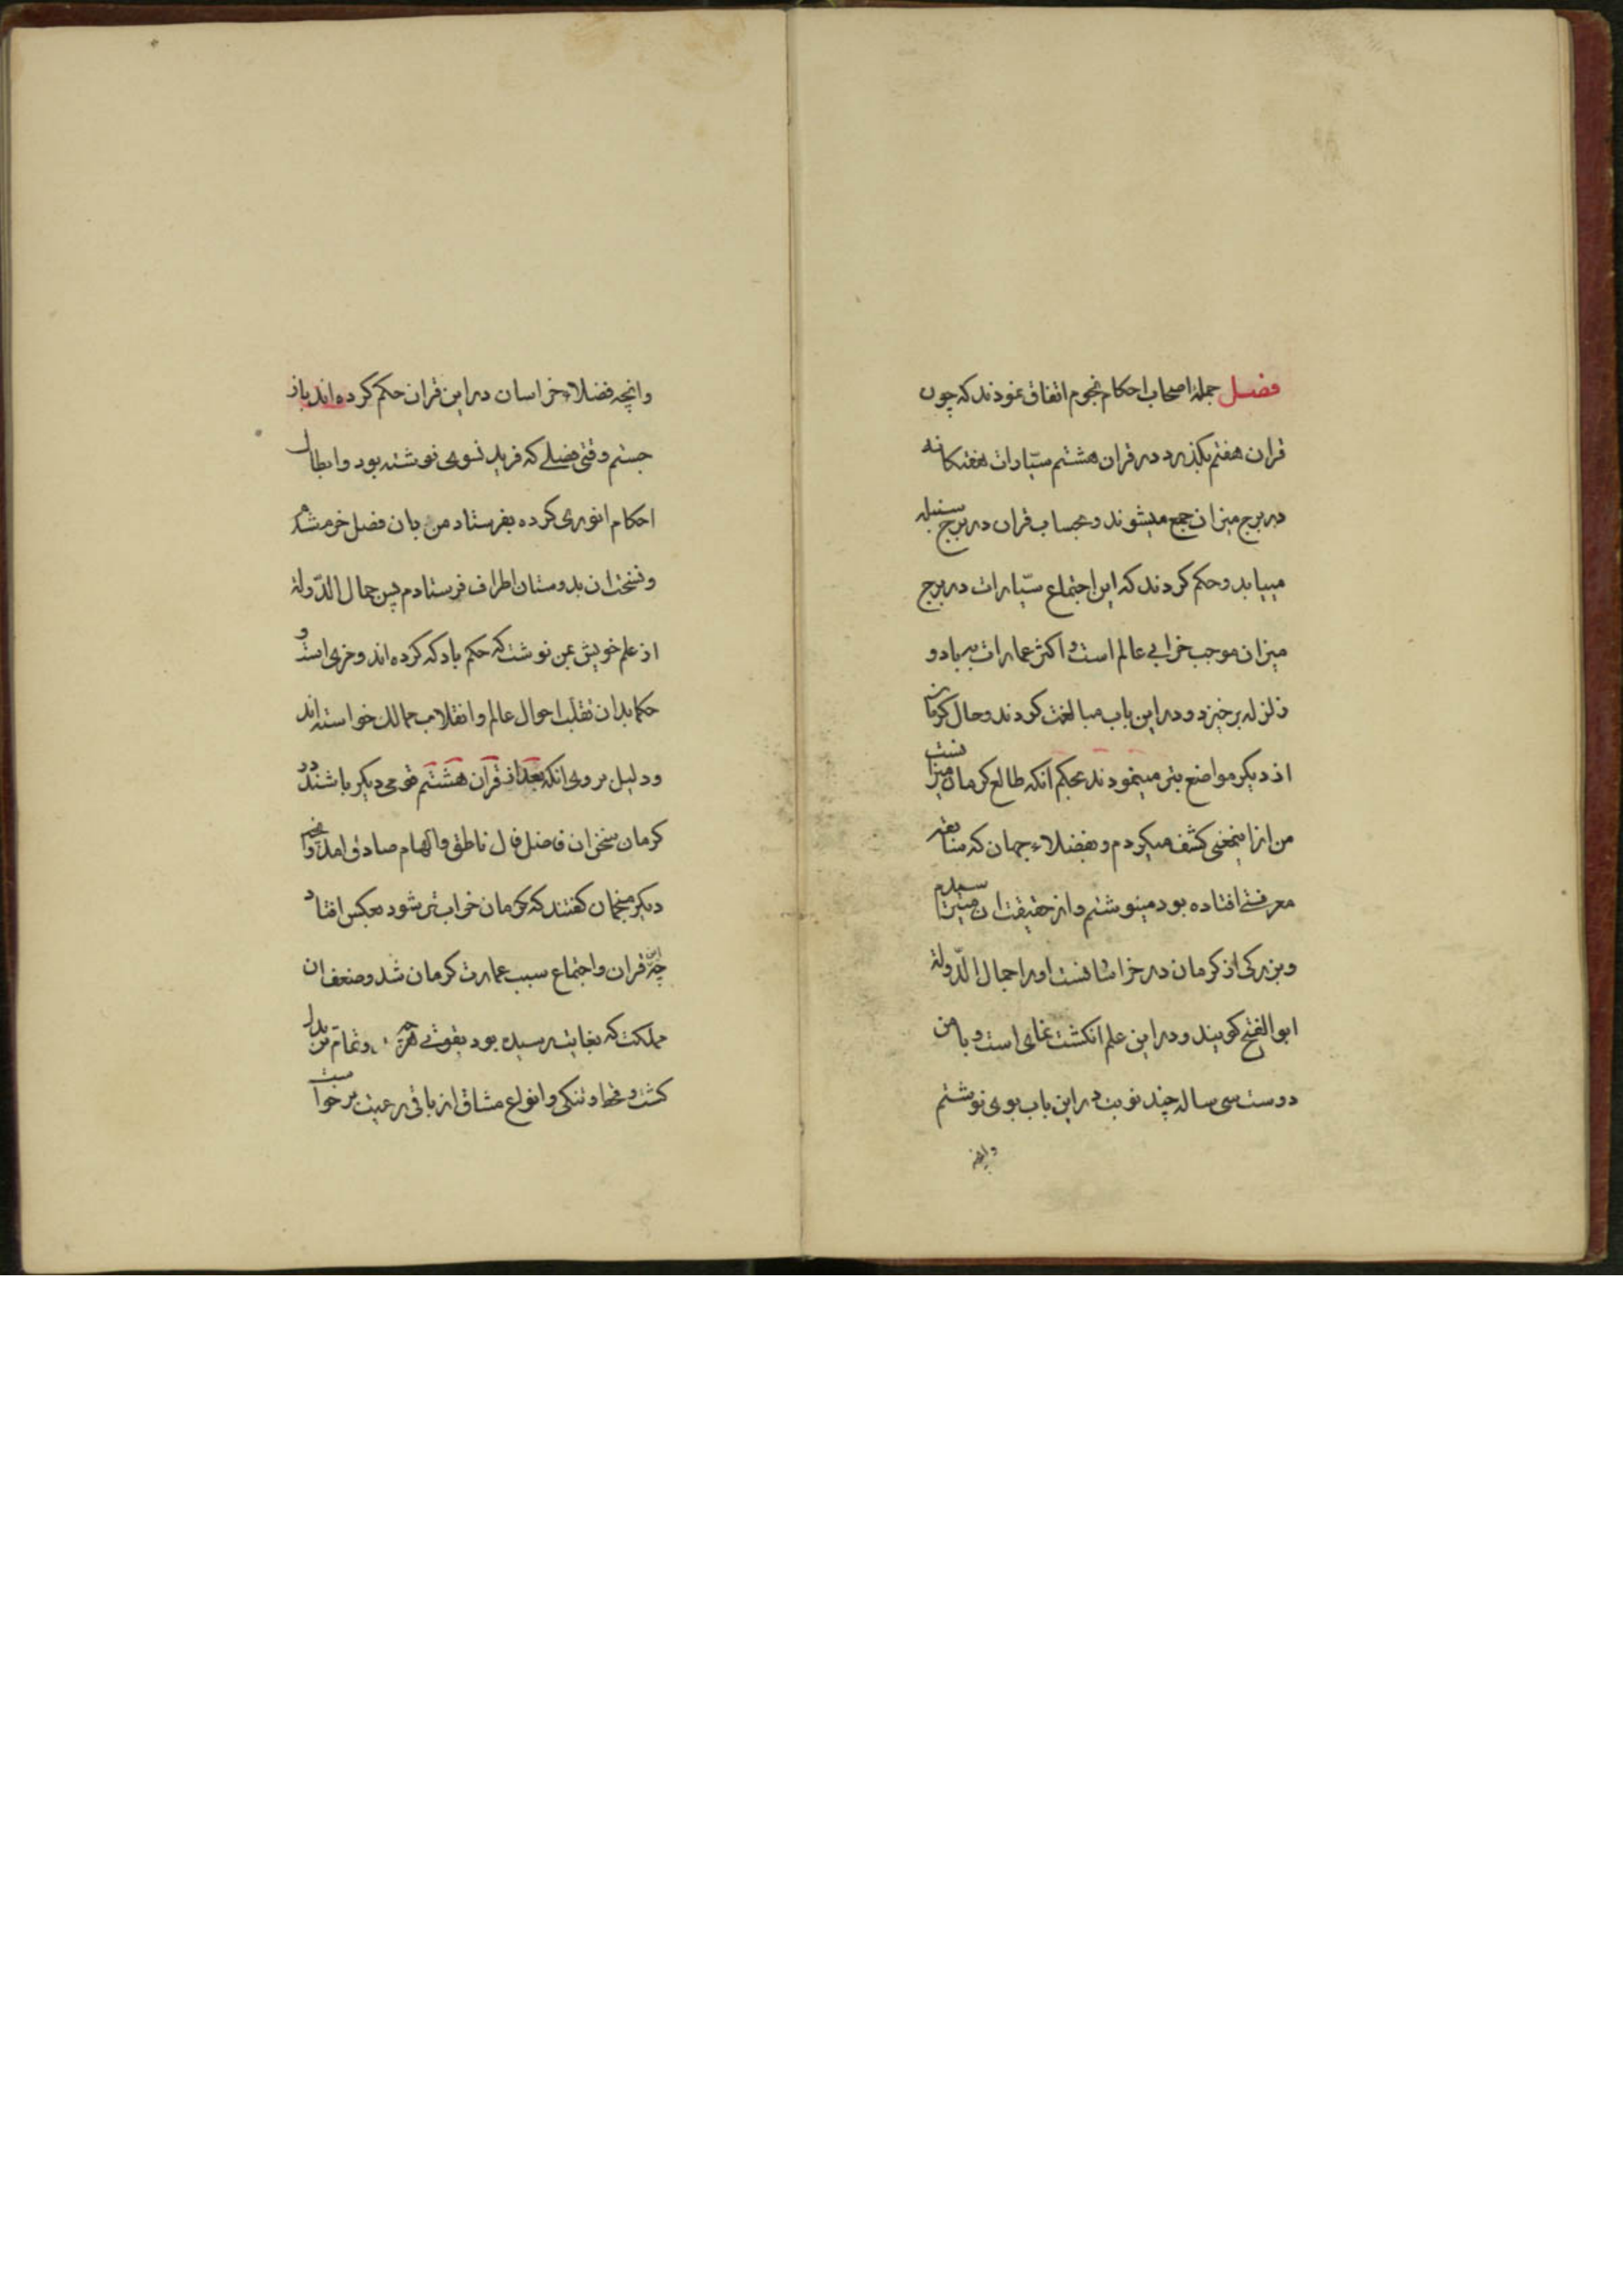 فصل جمله اصحاب احکام نجوم اتفاق نمودند که چون
قران هفتم بکذرد در قران هشتم سیّارات هفتکانه
در برج میزان جمع میشوند و بحساب قران در برج سنبله
میباید و حکم کردند که این اجتماع سیّارات در برج
میزان موجب خرابی عالم است و اکثر عمارات بر باد و
زلزله برخیزد و در این باب مبالغت کردند و حال کرمان
از دیکر مواضع بتر مینمودند بحکم آنکه طالع کرمان میزانست
من از اینمعنی کشف میکردم و بفضلاء جهان که
معرفتی افتاده بود مینوشتم و از حقیقت ان میپرسیدم
و بزرکی از کرمان در خراسانست او را جمال الدّوله
ابو الفتح کویند و در این علم انکشت نمای است و با من
دوست سی ساله چند نوبت در این باب بوی نوشتم
وانچه
وانچه فضلاء خراسان در این قران حکم کرده اند باز
جستم وقتی فصلی که فرید نسوی نوشته بود و ابطال
احکام انوری کرده بفرستاد من بان فصل خرم شدم
و نسخت ان بدوستان اطراف فرستادم پس جمال الدّوله
از علم خویش بمن نوشت که حکم باد که کرده اند و خری است و
حکما بدان تقلب احوال عالم و انقلاب ممالک خواسته اند
و دلیل بر وی انکه بعد از قران هشتم قومی دیکر باشند در
کرمان سخن ان فاضل فال ناطق و الهام صادق امد و آنچه
دیکر منجمان کفتند که کرمان خراب تر شود بعکس افتاد
چه این قران و اجتماع سبب عمارت کرمان شد و ضعف ان
مملکت که بغایت رسیده بود بقوت هر چه تمامتر بدل
کشت و قحط و تنکی و انواع مشاق از باقی رعیت برخواست